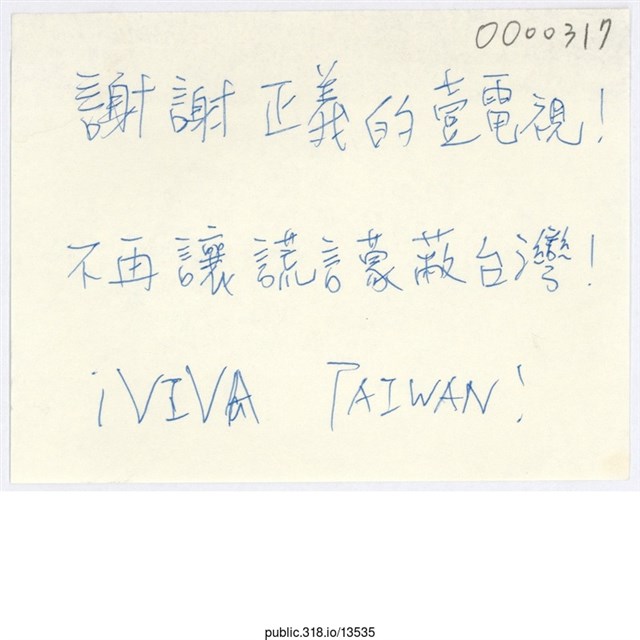 0000317
謝謝正義的壹電視！
不再讓謊言蒙蔽台灣！
¡VIVA TAIWAN!
public.318.io/13535